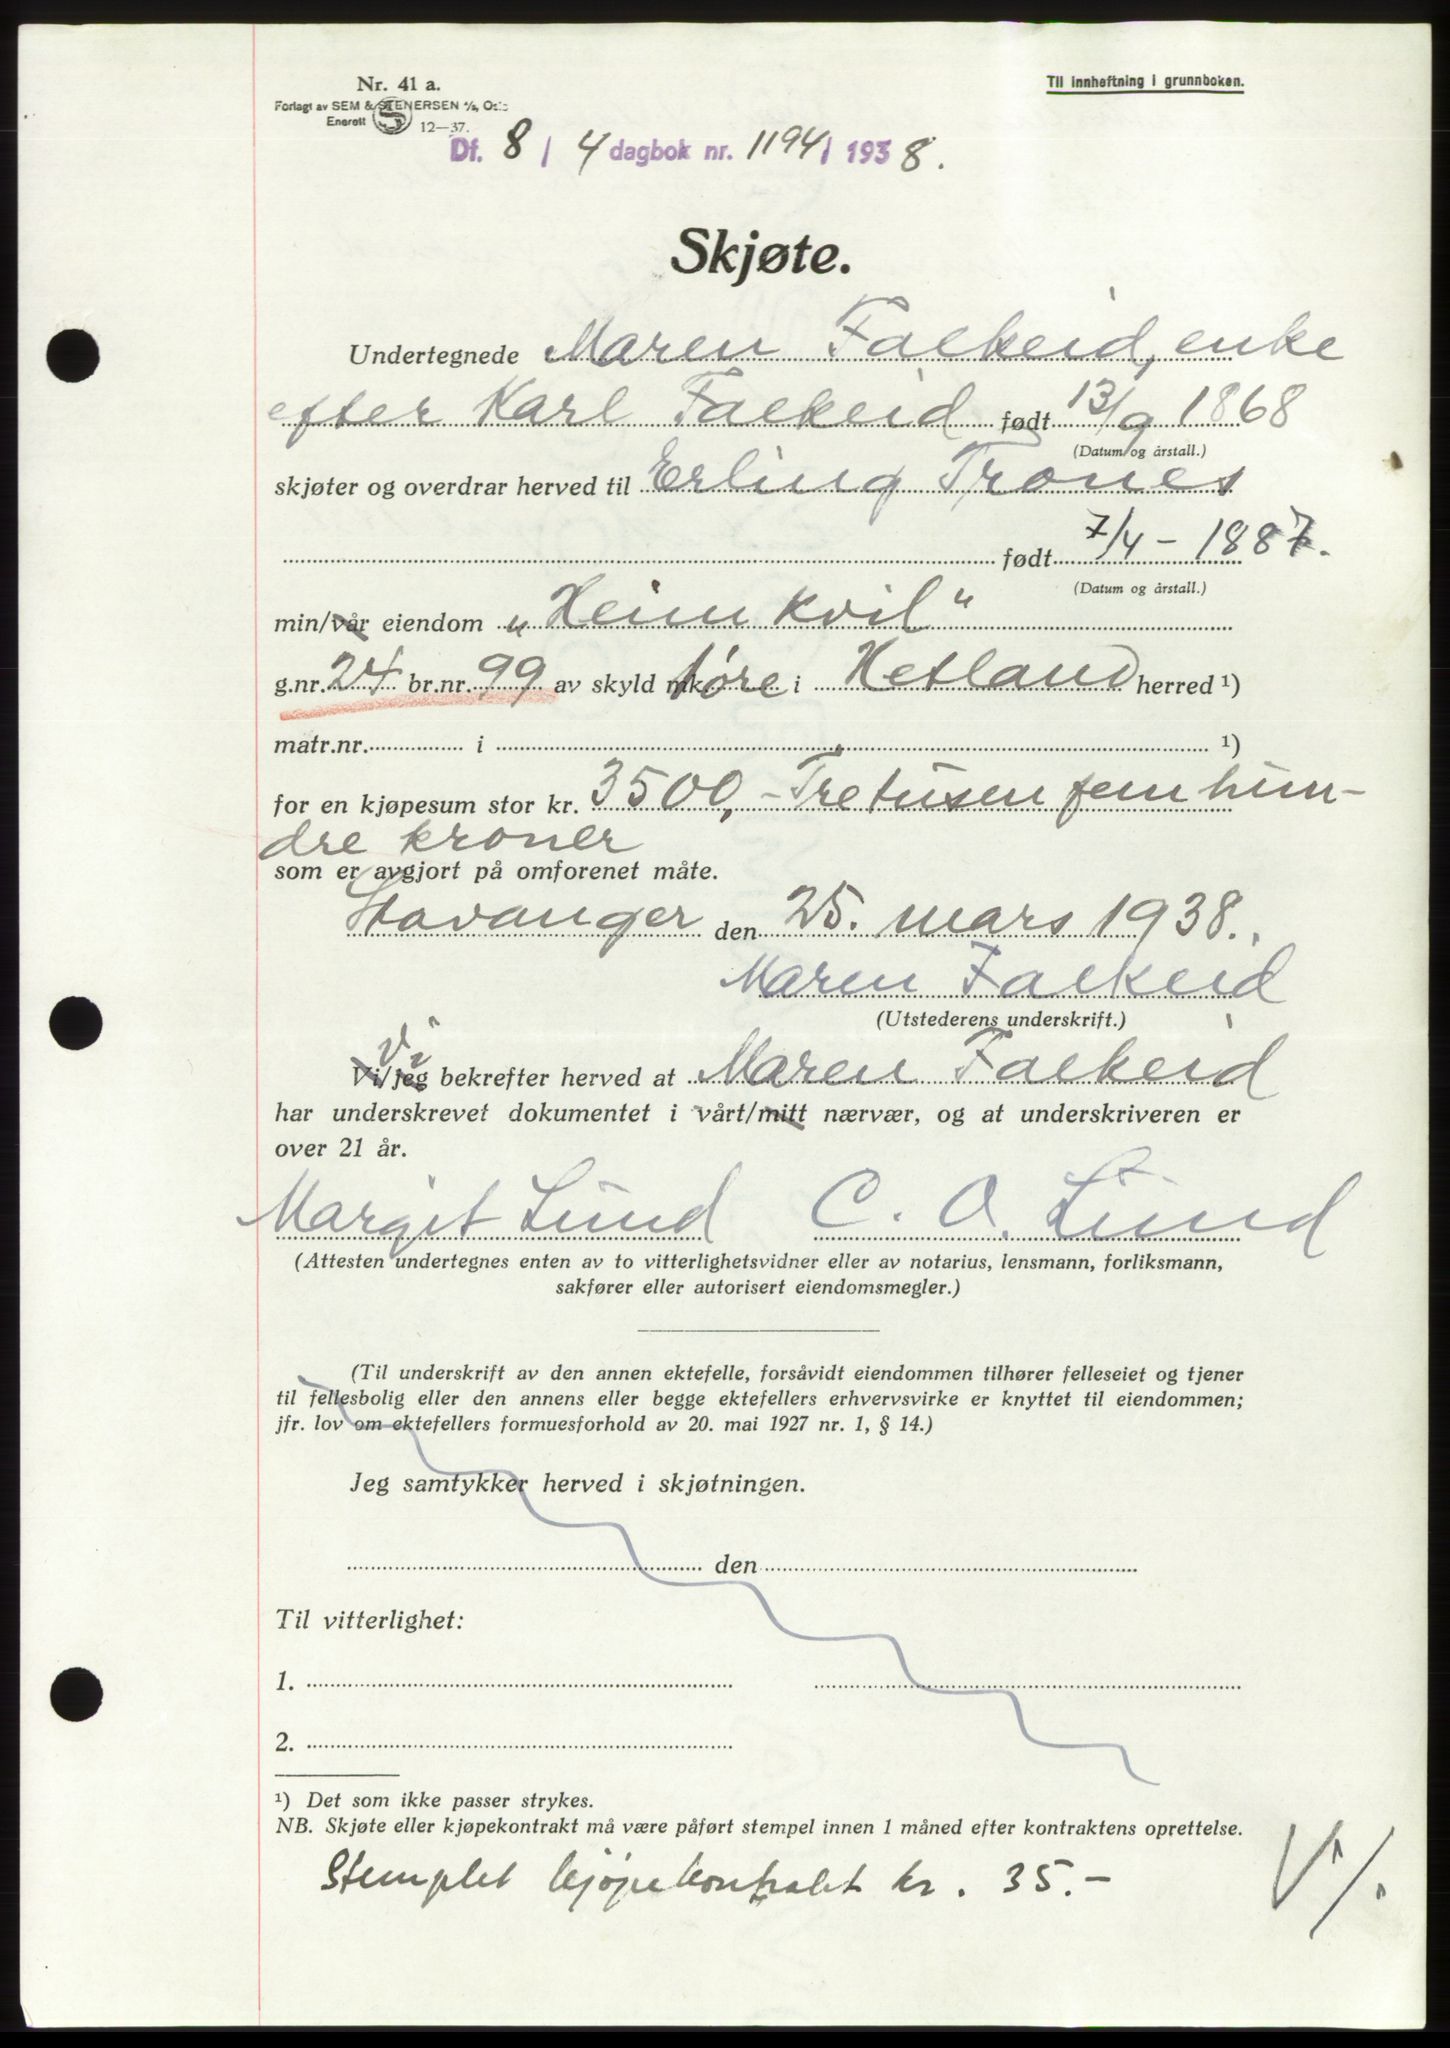 Nr. 41 a.
Til innheftning i grunnboken.
Forlagt av SEM & STENERSEN A/S, Oslo
Enerett S 12—37.
Df. 8 / 4 dagbok nr. 1194 / 1938.
Skjøte.
Undertegnede Maren Falkeid, enke
efter Karl Falkeid født 13/9 1868
(Datum og årstall.)
skjøter og overdrar herved til Erling Trones
født 7/4 - 1887.
(Datum og årstall.)
min/vår eiendom „Heimkvil“
g.nr. 24 br.nr. 99 av skyld mk. 1 øre i Hetland herred ¹)
matr.nr. i ¹)
for en kjøpesum stor kr. 3500,- Tretusen fem hun-
dre kroner
som er avgjort på omforenet måte.
Stavanger den 25. mars 1938.
Maren Falkeid
(Utstederens underskrift.)
Vi
Vi/jeg bekrefter herved at Maren Falkeid
har underskrevet dokumentet i vårt/mitt nærvær, og at underskriveren er
over 21 år.
Margit Lund C. O. Lund
(Attesten undertegnes enten av to vitterlighetsvidner eller av notarius, lensmann, forliksmann,
sakfører eller autorisert eiendomsmegler.)
(Til underskrift av den annen ektefelle, forsåvidt eiendommen tilhører felleseiet og tjener
til fellesbolig eller den annens eller begge ektefellers erhvervsvirke er knyttet til eiendommen;
jfr. lov om ektefellers formuesforhold av 20. mai 1927 nr. 1, § 14.)
Jeg samtykker herved i skjøtningen.
den
Til vitterlighet:
1.
2.
¹) Det som ikke passer strykes.
NB. Skjøte eller kjøpekontrakt må være påført stempel innen 1 måned efter kontraktens oprettelse.
Stemplet kjøpekontrakt kr. 35.-